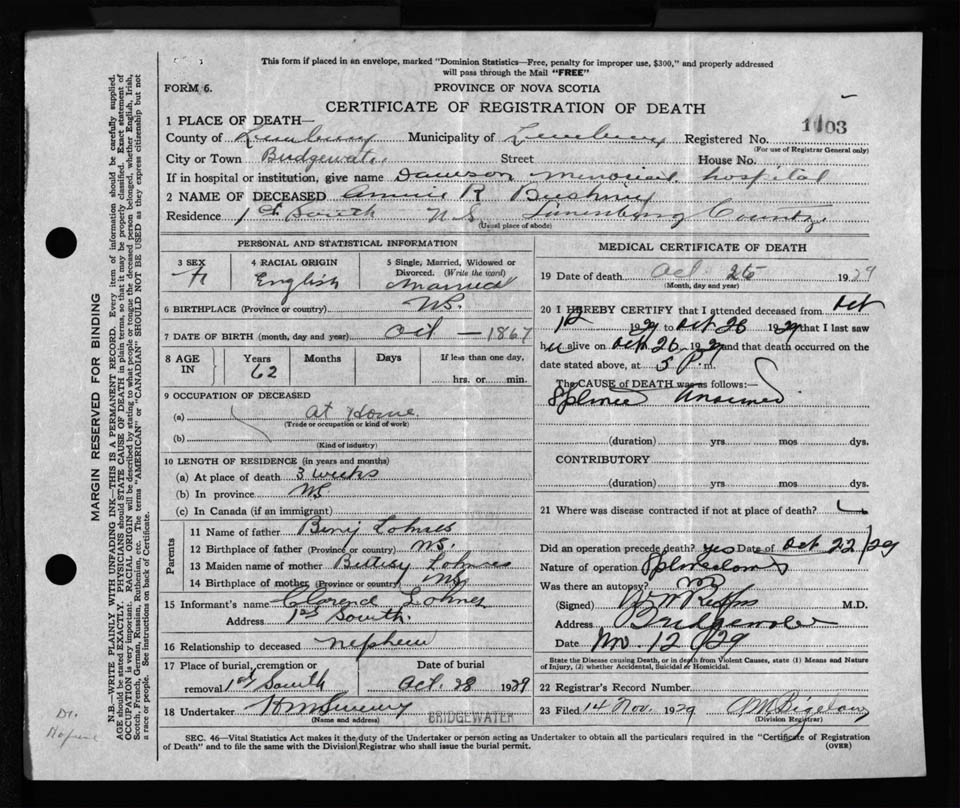 This form if placed in an envelope, marked "Dominion Statistics—Free, penalty for improper use, $300," and properly addressed
will pass through the Mail "FREE"
FORM 6.
PROVINCE OF NOVA SCOTIA
CERTIFICATE OF REGISTRATION OF DEATH
1 PLACE OF DEATH—
County of Lunenburg Municipality of Lunenburg Registered No. 1103
(For use of Registrar General only)
City or Town Bridgewater Street House No.
If in hospital or institution, give name Dawson Memorial hospital
2 NAME OF DECEASED Annie R
Residence 1st South N.S. Lunenburg County
(Usual place of abode)
PERSONAL AND STATISTICAL INFORMATION
3 SEX
4 RACIAL ORIGIN
English
5 Single, Married, Widowed or
Divorced. (Write the word)
Married
6 BIRTHPLACE (Province or country) NS.
7 DATE OF BIRTH (month, day and year) Oct — 1867
8 AGE IN
Years Months Days If less than one day,
62 hrs. or min.
9 OCCUPATION OF DECEASED
(a) At Home
(Trade or occupation or kind of work)
(b)
(Kind of industry)
10 LENGTH OF RESIDENCE (in years and months)
(a) At place of death 3 weeks
(b) In province NS
(c) In Canada (if an immigrant)
Parents
11 Name of father Benj Lohnes
12 Birthplace of father (Province or country) NS.
13 Maiden name of mother Lohnes
14 Birthplace of mother (Province or country) NS
15 Informant's name Lohnes
Address 1st South.
16 Relationship to deceased nephew
17 Place of burial, cremation or Date of burial
removal 1st South Oct. 28 1929
18 Undertaker
(Name and address)
BRIDGEWATER
MEDICAL CERTIFICATE OF DEATH
19 Date of death Oct 26 1929
(Month, day and year)
20 I HEREBY CERTIFY that I attended deceased from Oct
12 1929 to Oct 26 1929 that I last saw
her alive on Oct 26 1929 and that death occurred on the
date stated above, at 5 P.m.
The CAUSE of DEATH was as follows:—
Splenic
(duration) yrs mos dys.
CONTRIBUTORY
(duration) yrs mos dys.
21 Where was disease contracted if not at place of death?
Did an operation precede death? yes Date of Oct 22/29
Nature of operation
Was there an autopsy? no
(Signed) M.D.
Address Bridgewater
Date Nov. 12/29
State the Disease causing Death, or in death from Violent Causes, state (1) Means and Nature
of Injury, (2) whether Accidental, Suicidal or Homicidal.
22 Registrar's Record Number
23 Filed 14 Nov. 1929
(Division Registrar)
SEC. 46—Vital Statistics Act makes it the duty of the Undertaker or person acting as Undertaker to obtain all the particulars required in the "Certificate of Registration
of Death" and to file the same with the Division Registrar who shall issue the burial permit.
(OVER)
MARGIN RESERVED FOR BINDING
N.B.—WRITE PLAINLY WITH UNFADING INK—THIS IS A PERMANENT RECORD. Every item of information should be carefully supplied.
AGE should be stated EXACTLY. PHYSICIANS should STATE CAUSE OF DEATH in plain terms, so that it may be properly classified. Exact statement of
OCCUPATION is very important. RACIAL ORIGIN will be described by stating to what people or tongue the deceased person belonged, whether English, Irish,
Scotch, French, German, Russian, Ruthenian, etc. The terms "AMERICAN" or "CANADIAN" SHOULD NOT BE USED as they express citizenship but not
a race or people. See instructions on back of Certificate.
Dr.